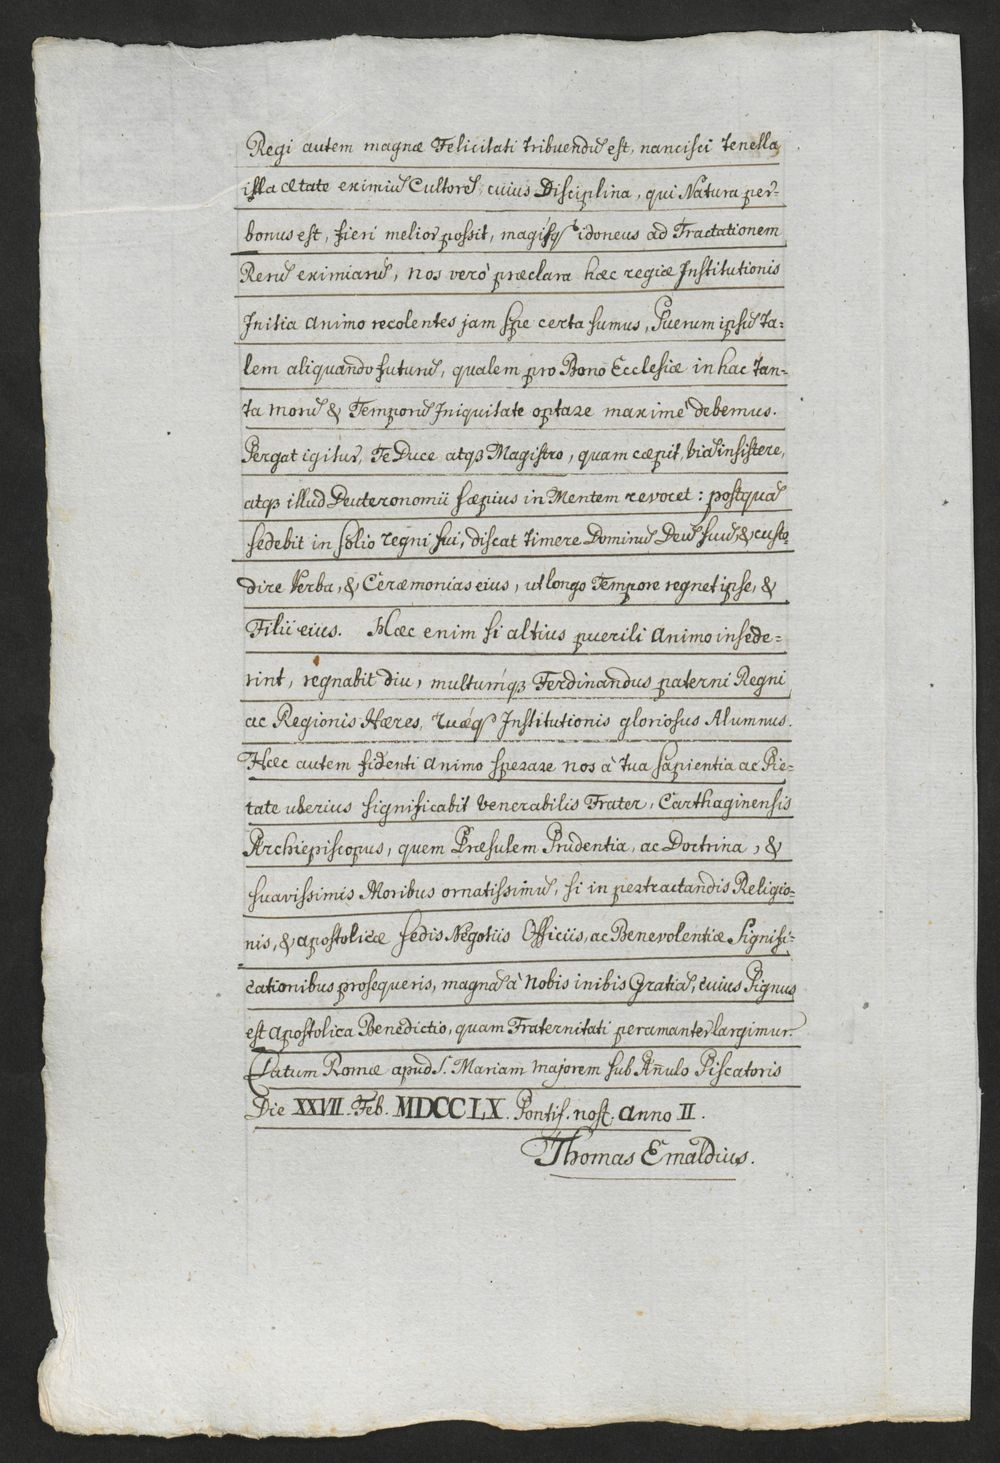 Regi autem magnæ Felicitati tribuendũ est, nancisci tenella
illa ætate eximiũ Cultorẽ, cuius Disciplina, qui Natura per-
bonus est, fieri melior possit, magisq́ idoneus ad Tractationem
Rerũ eximiarũ, nos verò præclara hæc regiæ Institutionis
Initia animo recolentes jam spe certa sumus, Puerum ipsũ ta=
lem aliquando futurũ, qualem pro Bono Ecclesiæ in hac tan-
ta morũ & Temporũ Iniquitate optare maximè debemus.
Pergat igitur, Te Duce atqȝ Magistro, quam cæpit, viã insistere,
atqȝ illud Deuteronomii sæpius in Mentem revocet: postquã
sedebit in solio regni sui, discat timere Dominũ Deũ suũ, & custo-
dire Verba, & Cæremonias eius, ut longo Tempore regnet ipse, &
Filii eius. Hæc enim si altius puerili animo insede=
rint, regnabit diu, multumqȝ Ferdinandus paterni Regni
ac Regionis Hæres, tuæq́ Institutionis gloriosus Alumnus.
Hæc autem fidenti animo sperare nos à tua sapientia ac Pie=
tate uberius significabit Venerabilis Frater, Carthaginensis
Archiepiscopus, quem Præsulem Prudentia, ac Doctrina, &
suavissimis Moribus ornatissimũ, si in pertractandis Religio-
nis, & apostolicæ sedis Negotiis Officiis, ac Benevolentiæ Signifi-
cationibus prosequeris, magnã à Nobis inibis Gratiã, cuius Pignus
est apostolica Benedictio, quam Fraternitati peramanter largimur.
Datum Romæ apud S. Mariam majorem sub Añulo Piscatoris
Die XXVII. Feb. MDCCLX. Pontif. nost. anno II.
Thomas Emaldius.